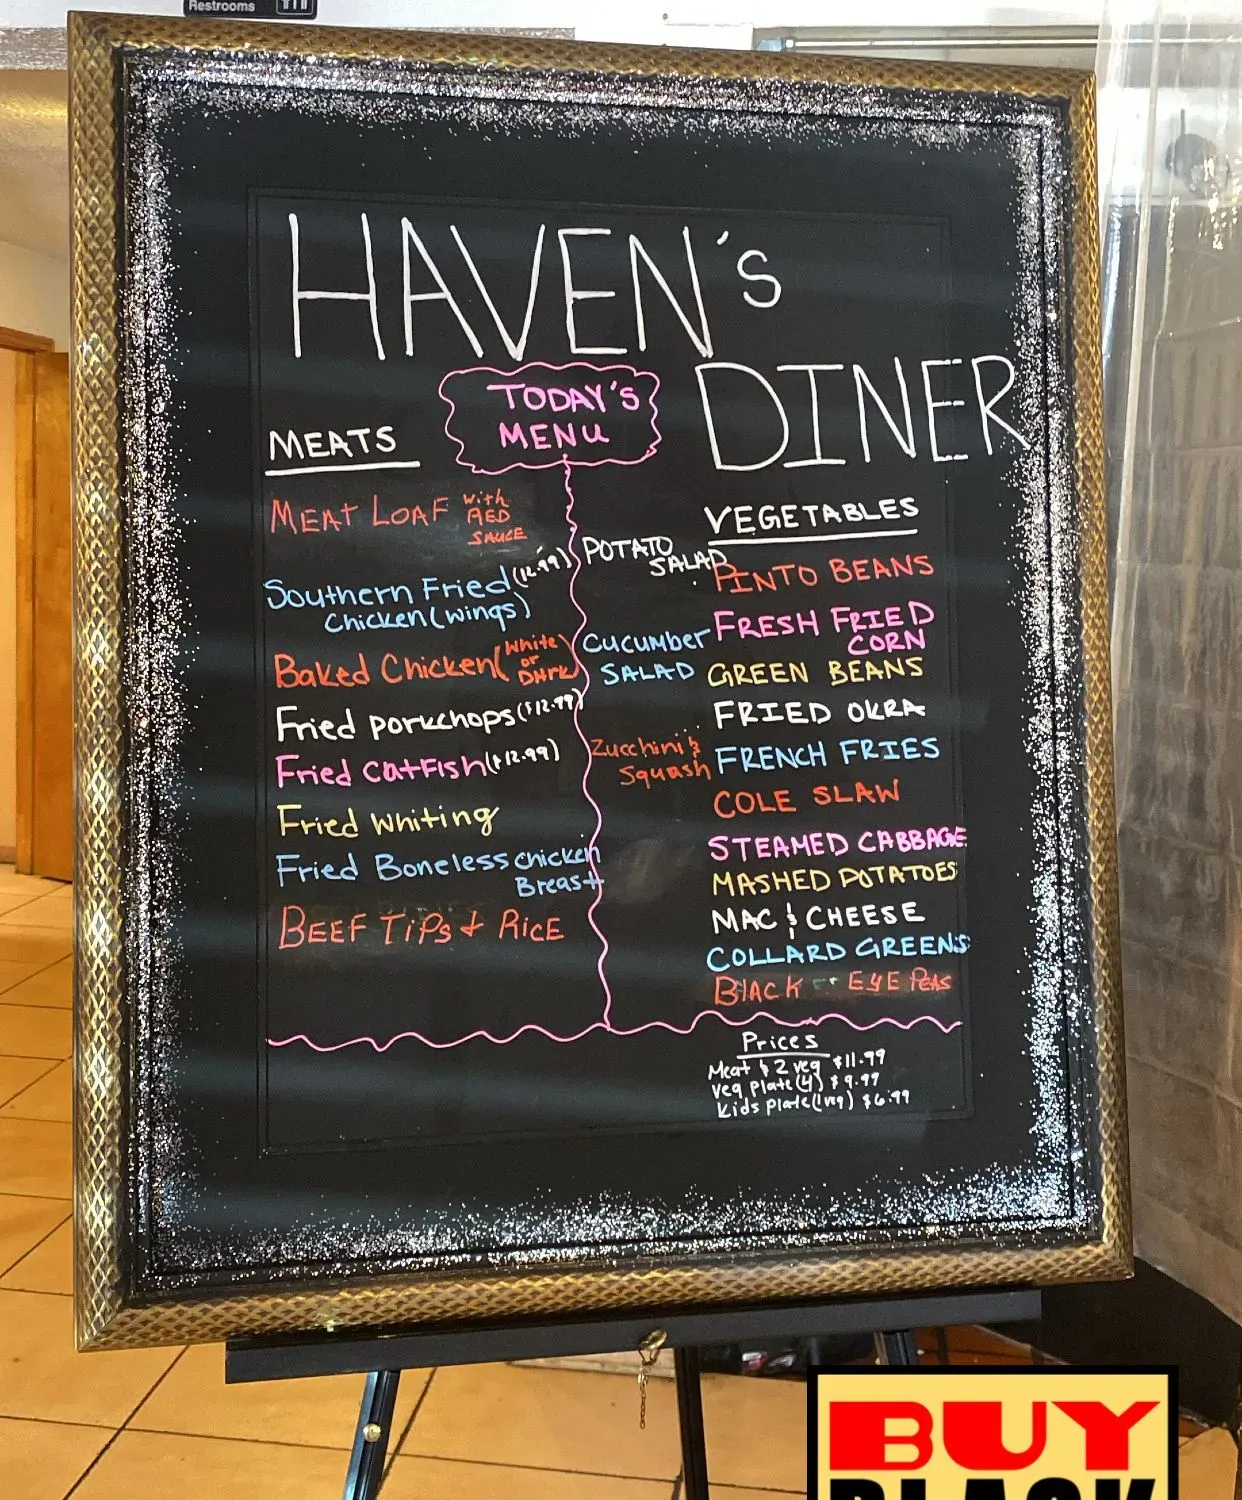 Restrooms
HAVEN's
DINER
TODAY'S
MENU
MEATS
MEAT LOAF with
RED
SAUCE
Southern Fried (12.99)
Chicken (wings)
Baked Chicken (White
or
Dark)
Fried porkchops ($12.99)
Fried Catfish ($12.99)
Fried Whiting
Fried Boneless chicken
Breast
BEEF TIPS & RICE
POTATO
SALAD
CUCUMBER
SALAD
Zucchini &
Squash
VEGETABLES
PINTO BEANS
FRESH FRIED
CORN
GREEN BEANS
FRIED OKRA
FRENCH FRIES
COLE SLAW
STEAMED CABBAGE
MASHED POTATOES
MAC & CHEESE
COLLARD GREENS
BLACK EYE PEAS
Prices
Meat & 2 veg $11.99
Veg plate (4) $9.99
Kids plate (1 veg) $6.99
BUY
BLACK